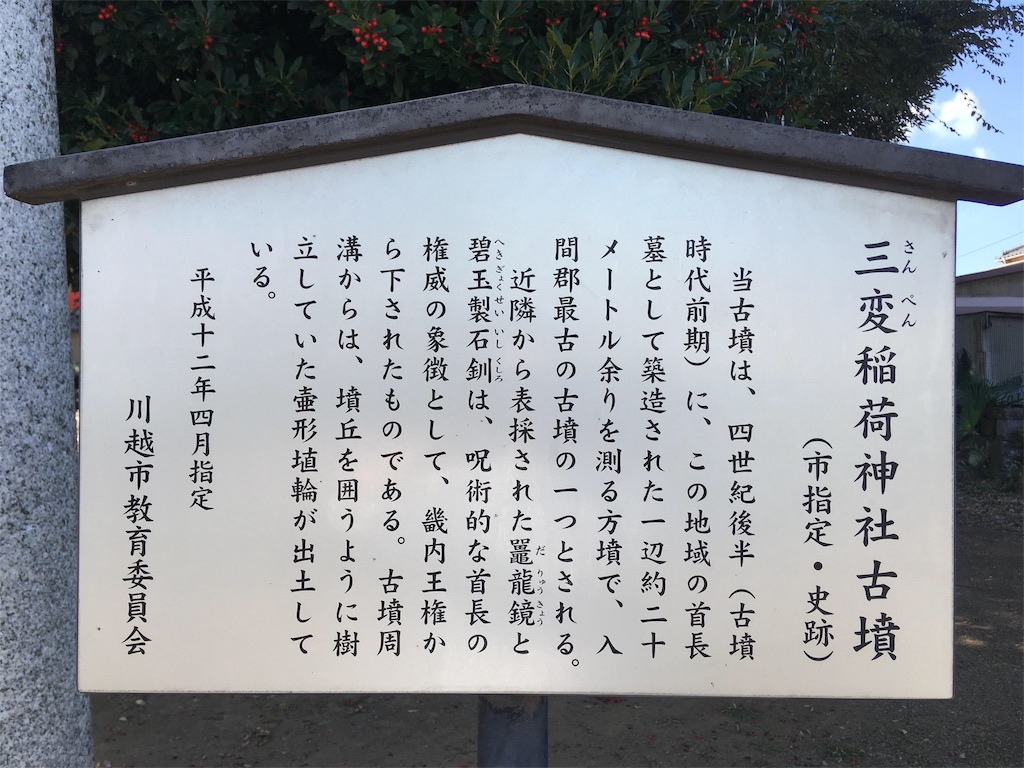 三変稲荷神社古墳
さんぺん
(市指定・史跡)
当古墳は、四世紀後半(古墳
時代前期)に、この地域の首長
墓として築造された一辺約二十
メートル余りを測る方墳で、入
間郡最古の古墳の一つとされる。
近隣から表採された鼉龍鏡と
だりゅうきょう
碧玉製石釧は、呪術的な首長の
へきぎょくせいいしくしろ
権威の象徴として、畿内王権か
ら下されたものである。古墳周
溝からは、墳丘を囲うように樹
立していた壷形埴輪が出土して
いる。
平成十二年四月指定
川越市教育委員会